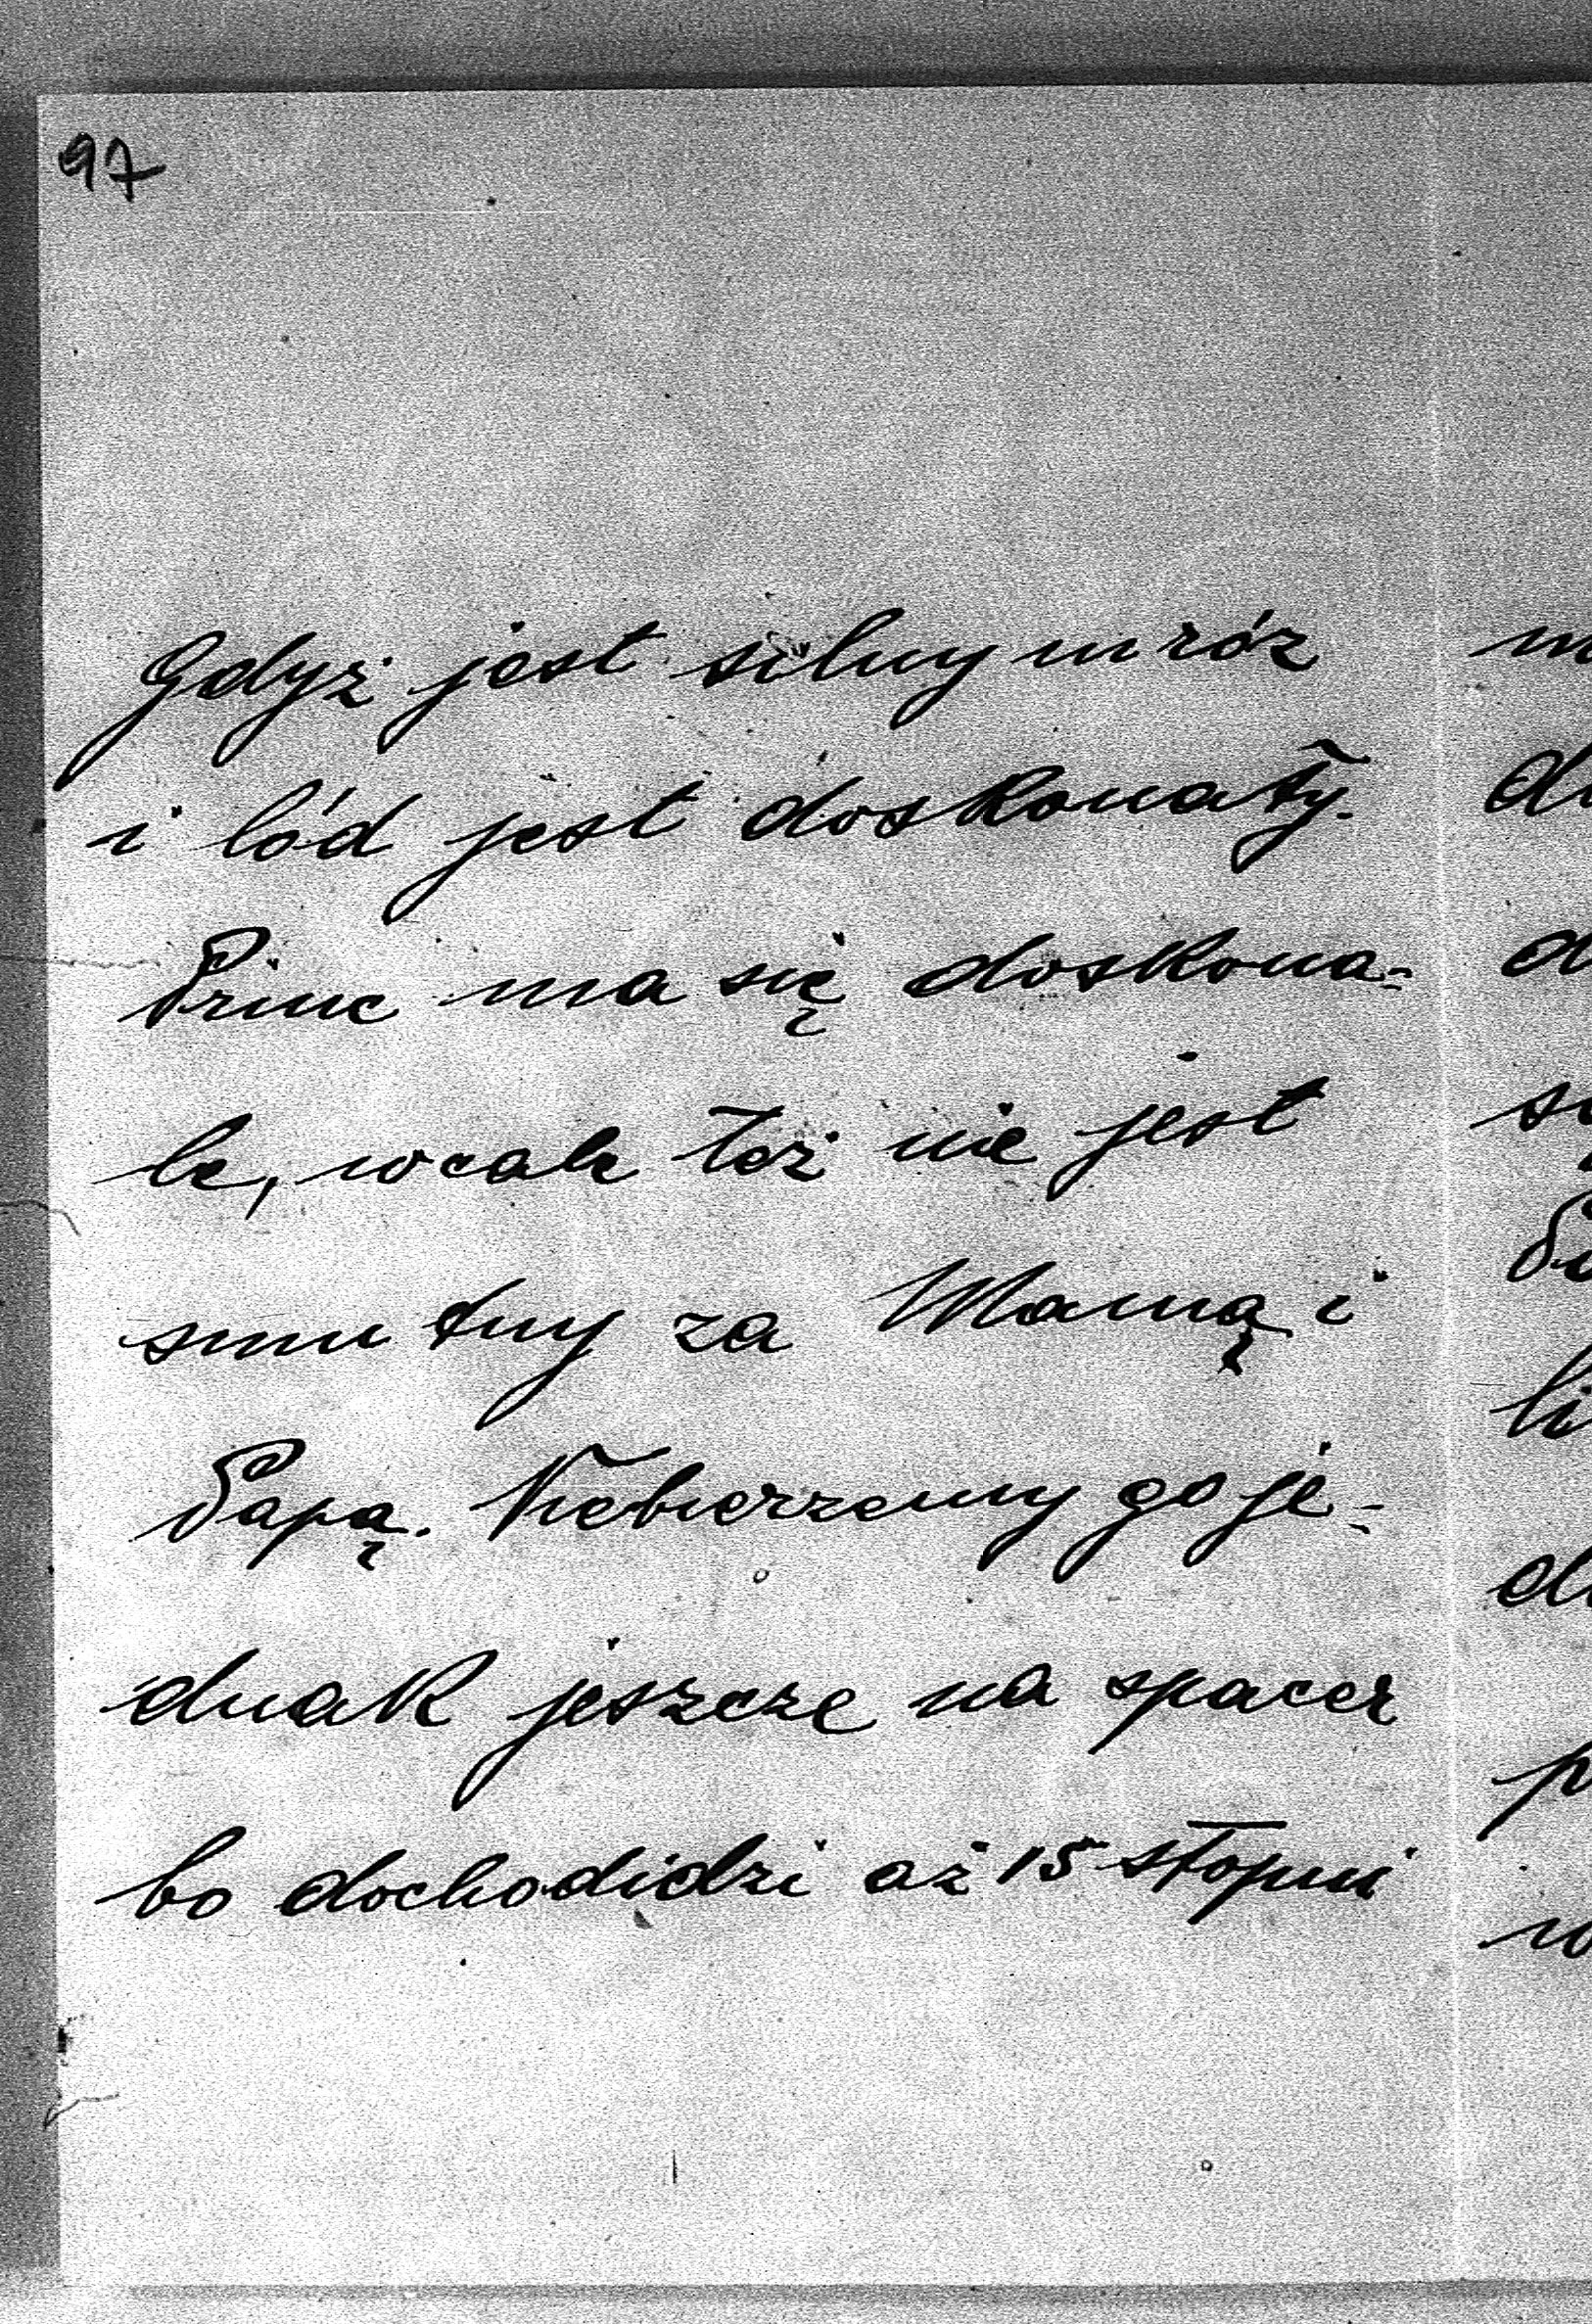 97
Gdyż jest silny mróz
i lód jest doskonały.
Princ ma się doskona-
le, wcale też nie jest
smutny za Mamą i
Papą. Niebierzemy go je-
dnak jeszcze na spacer
bo dochodidzi aż 15 stopni